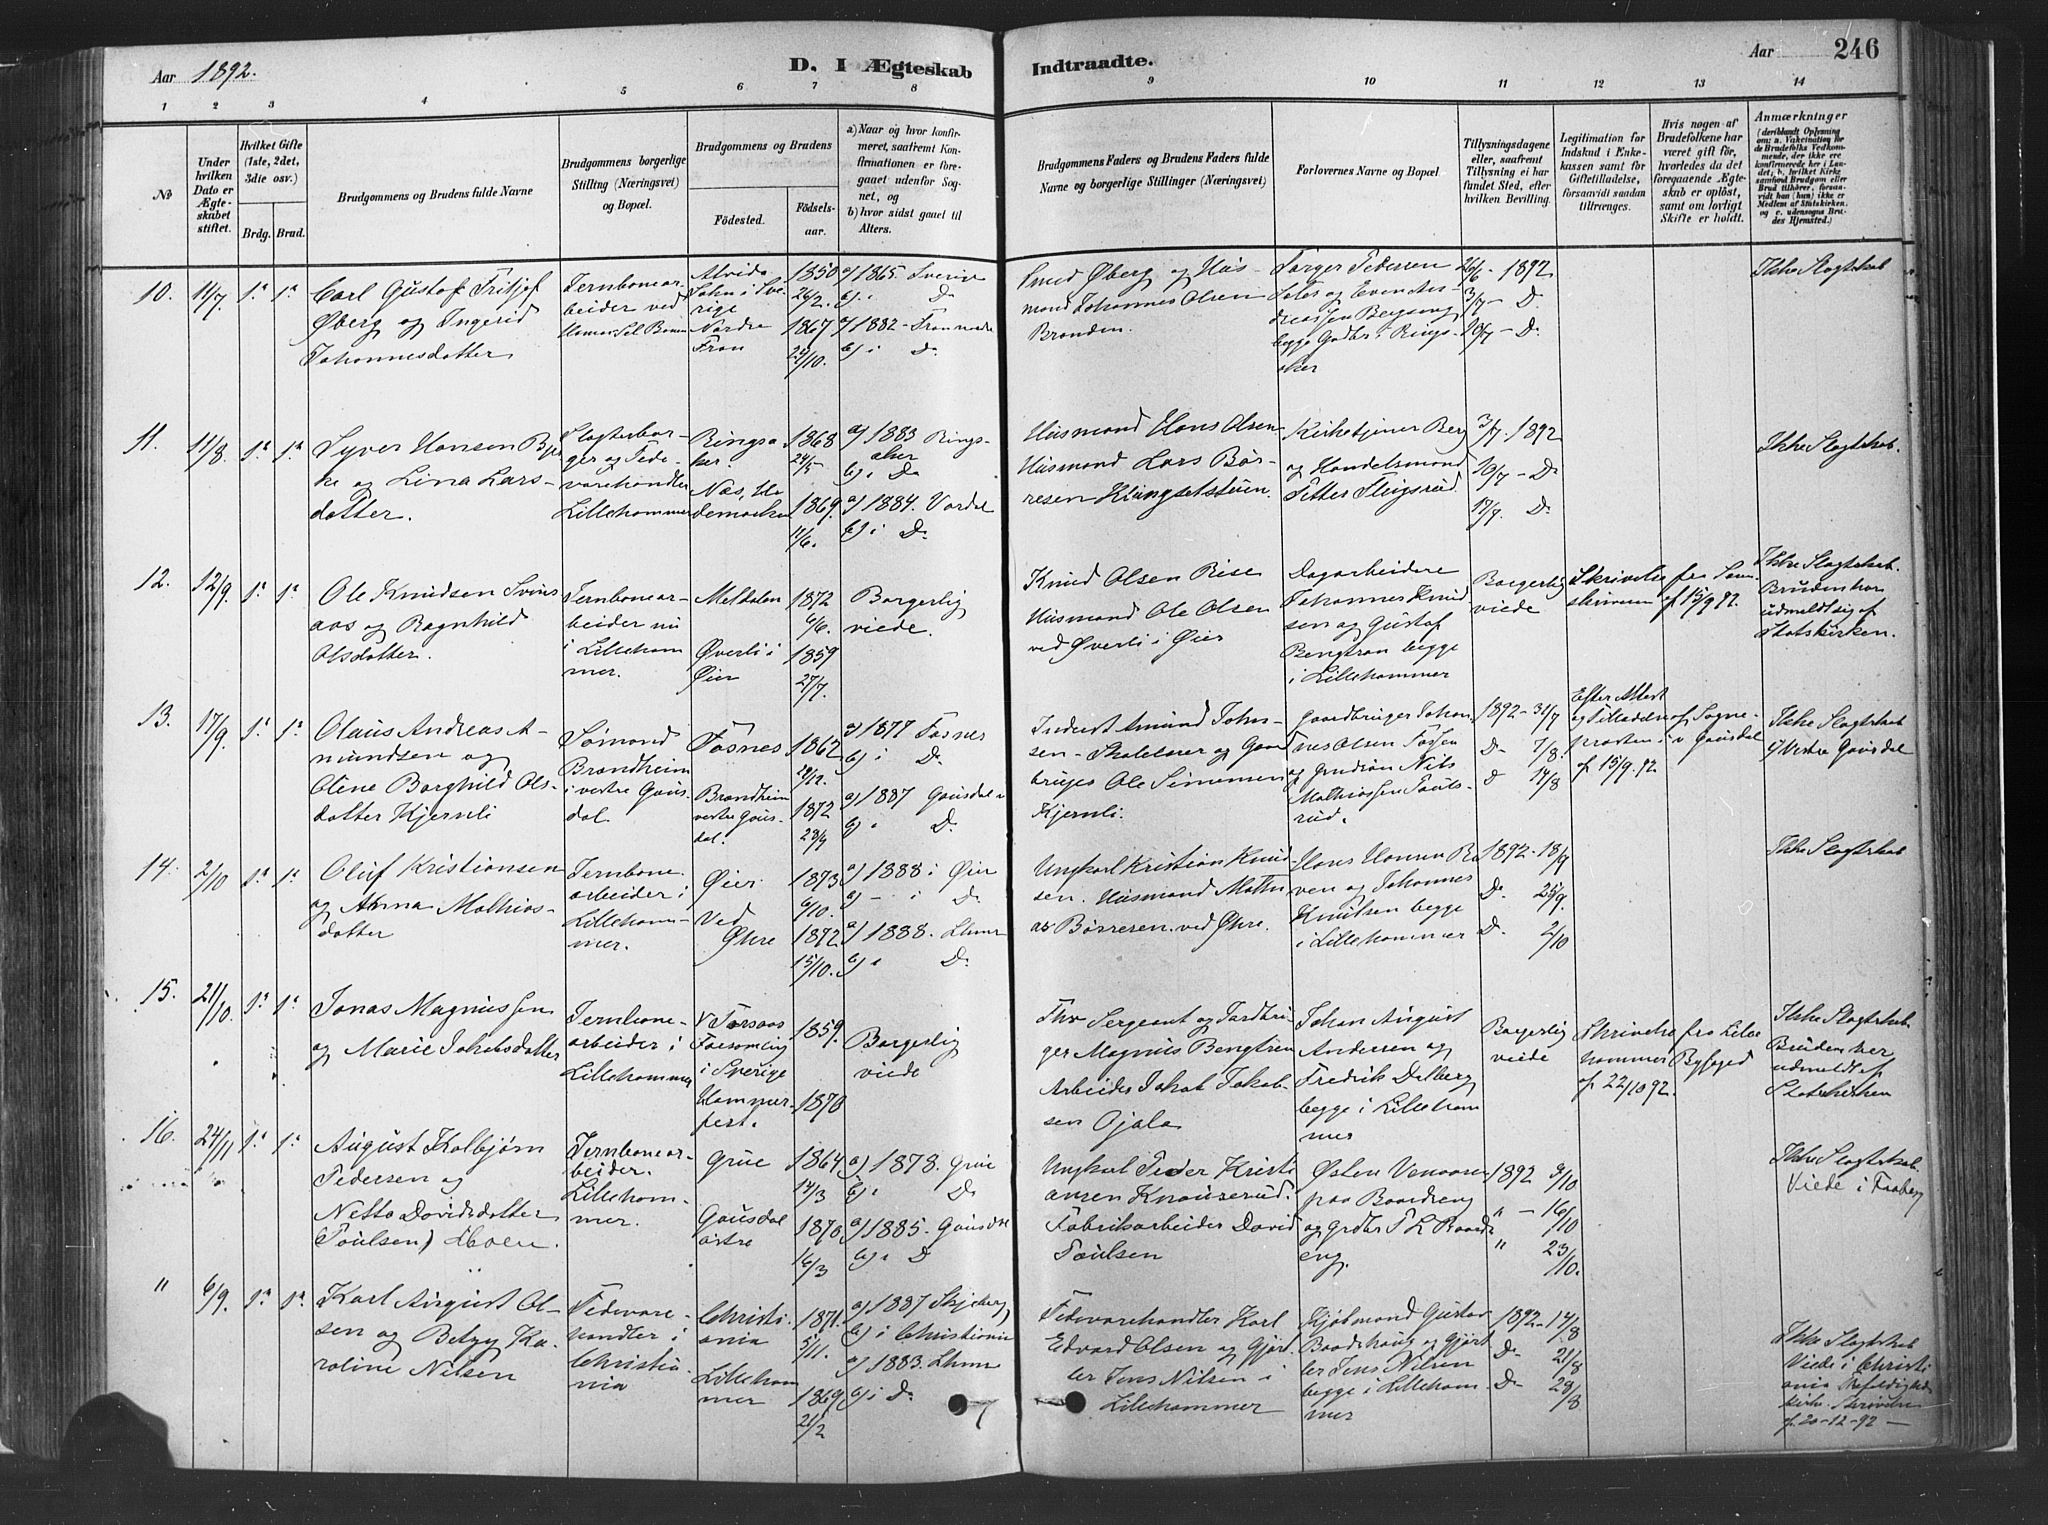 Aar 1892.
D. I Ægteskab
Indtraadte.
Aar
246
1 2 3 4 5 6 7 8 9 10 11 12 13 14
No
Under hvilken Dato er Ægteskabet stiftet.
Hvilket Gifte (1ste, 2det, 3die osv.)
Brdg. Brud.
Brudgommens og Brudens fulde Navne
Brudgommens borgerlige Stilling (Næringsvei) og Bopæl.
Brudgommens og Brudens
Födested.
Födselsaar.
a) Naar og hvor konfirmeret, saafremt Konfirmationen er foregaaet udenfor Sognet, og
b) hvor sidst gaaet til Alters.
Brudgommens Faders og Brudens Faders fulde Navne og borgerlige Stillinger (Næringsvei)
Forlovernes Navne og Bopæl.
Tillysningsdagene eller, saafremt Tillysning ei har fundet Sted, efter hvilken Bevilling.
Legitimation for Indskud i Enkekassen samt for Giftetilladelse, forsaavidt saadan tiltrænges.
Hvis nogen af Brudefolkene har været gift för, hvorledes da det foregaaende Ægteskab er oplöst, samt om lovligt Skifte er holdt.
Anmærkninger
10. 11/7 1ª 1ª
Carl Gustaf Fritjof
Øberg og Ingerid
Johannesdatter
Jernbanearbeider ved
Nordre Fron
1850 26/2.
1867 25/10.
a) 1865 Sverige
b) i Do
a) 1882 - Fron
b) i Do
Øberg og Husmand Johannes Olsen
Branden.
Torger Pedersen
begge Gaardbr. i Ringsaker
26/6 - 1892
3/7 - Do
10/7 - Do
Ikke Slægtskab
11. 11/8. 1ª 1ª
Syver Hansen
og Lina Larsdatter.
Slagterborger og Fedevarehandler
Lillehammer
Ringsaker.
Næs, Hedemarken
1868 24/5
1869. 11/6.
a) 1883 Ringsaker
b) i Do
a) 1884. Vardal
b) i Do
Husmand Hans Olsen
Husmand Lars Børresen Klungsetstuen.
Kirketjener Berg
og Handelsmand
Petter Slugsrud.
3/7. 1892
10/7 - Do
17/7. Do
Ikke Slægtskab.
12. 12/9. 1ª 1ª
Ole Knudsen Svinsaas og Ragnhild
Olsdatter.
Jernbanearbeider nu
i Lillehammer.
Meldalen
Øverli i Øier
1872 6/6.
1859 27/7.
Borgerlig viede.
Knud Olsen Rise
Husmand Ole Olsen
ved Øverli i Øier
Dagarbeidere
Johannes Knudsen og Gustaf
Bengtson begge
i Lillehammer
Borgerlig viede
Skrivelse fra Sorenskriveren af 15/9 92.
Ikke Slægtskab.
Bruden har udmeldt sig af Statskirken.
13. 17/9. 1ª 1ª
Olaus Andreas Amundsen og
Oline Borghild Olsdatter Kjernli
Sømand
Brandheim
i vestre Gausdal.
Fosnes
Brandheim vestre Gausdal.
1862 29/12.
1872 28/9
a) 1877 Fosnes
b) i Do
a) 1887 Gausdal
b) i Do
Amund Johnsen - og Gaardbruger Ole Simensen
Kjernli.
Gaardbruger Johannes Olsen
og Nils
Mathiassen
1892 - 31/7
Do 7/8.
Do 14/8
Efter Attest
og Tilladelse af Sognepræsten i v Gausdal
af 15/9. 92.
Ikke Slægtskab
Vestre Gausdal
14. 2/10 1ª 1ª
Oluf Kristiansen
og Anna Mathiasdatter
Jernbanearbeider i
Lillehammer.
Øier.
Ved Øhre
1873 6/10.
1872. 15/10.
a) 1888 i Øier
b) - i Do
a) 1888. Lhmr
b) i Do
Ungkarl Kristian Knudsen. Husmand Mathias Børresen. ved Øhre.
Hans Hansen
og Johannes
Knutsen begge
i Lillehammer
1892 - 18/9
Do 25/9.
Do. 2/10
Ikke Slægtskab
15. 21/10. 1ª 1ª
Jonas Magnussen
og Marie Jakobsdatter
Jernbanearbeider i
Lillehammer
Forsamling
i Sverige
Hammerfest.
1859.
1870
Borgerlig viede
Fhv Sergeant og
Magnus Bengtsen
Arbeider Jakob Jakobsen Ojala
Johan August
Andersen og
Fredrik Delberg
begge i Lillehammer
Borgerlig viede
Skrivelse fra Lillehammer Byfoged
af 22/10 92.
Ikke Slægtskab.
Bruden har udmeldt af
Statskirken
16. 24/11 1ª 1ª
August Kolbjørn
Pedersen og
Netta Davidsdatter
(Poulsen)
Jernbanearbeider.
Lillehammer.
Grue
Gausdal østre
1864 14/3
1870 16/3
a) 1878. Grue
b) i Do
a) 1885. Gausdal
b) i Do
Ungkarl Peder Kristiansen Knauserud.
Fabrikarbeider David
Poulsen
Østen
paa Baardseng
1892 9/10
" - 16/10
" 23/10.
Ikke Slægtskab.
Viede i Faaberg
" 6/9. 1ª 1ª
Karl August Olsen og Betzy Karoline Nielsen
Fedevarehandler i
Christiania
Christiania
Lillehammer
1871. 5/11.
1869 21/2
a) 1887 Skjeberg
b) i Christiania
a) 1883. Lhmr
b) i Do
Fedevarehandler Karl
Edvard Olsen og Gjørtler Jens Nilsen i
Lillehammer
Kjøbmand Gustav
Baardshaug og Gjørtler Jens Nilsen
begge i Lillehammer
1892 - 14/8
Do 21/8
Do 28/8
Ikke Slægtskab
Viede i Christiania Trefoldighedskirke. Skrivelse
af 20-12-92 -